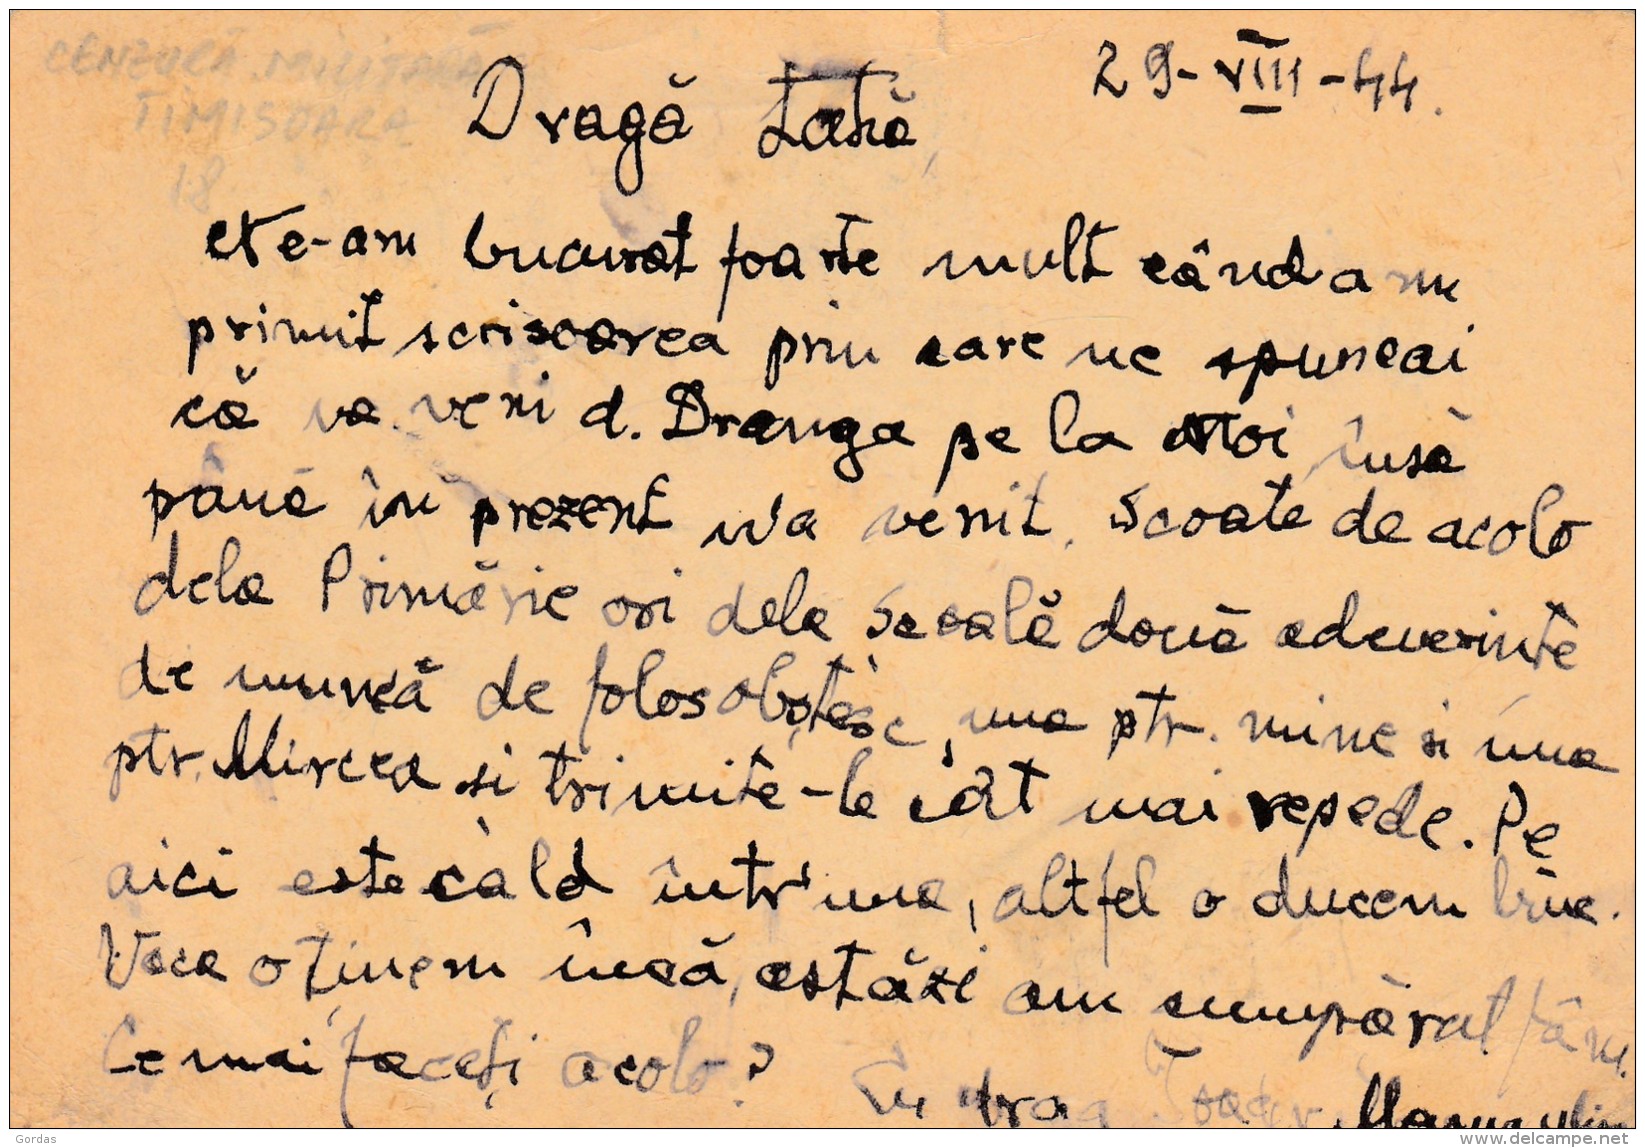 CENZURĂ MILITARĂ
TIMISOARA
18
29-VIII-44.
Dragă tată,
Ne-am bucurat foarte mult când am
primit scrisoarea prin care ne spuneai
că va veni d. Dranga pe la noi, însă
până în prezent n'a venit. Scoate de acolo
dela Primărie ori dela Școală două adeverințe
de muncă de folos obștesc, una ptr. mine si una
ptr. Mircea si trimite-le cât mai repede. Pe
aici este cald într'una, altfel o ducem bine.
Vaca o ținem încă, astăzi am cumpărat fân.
Ce mai faceți acolo?
Gordas
delcampe.net